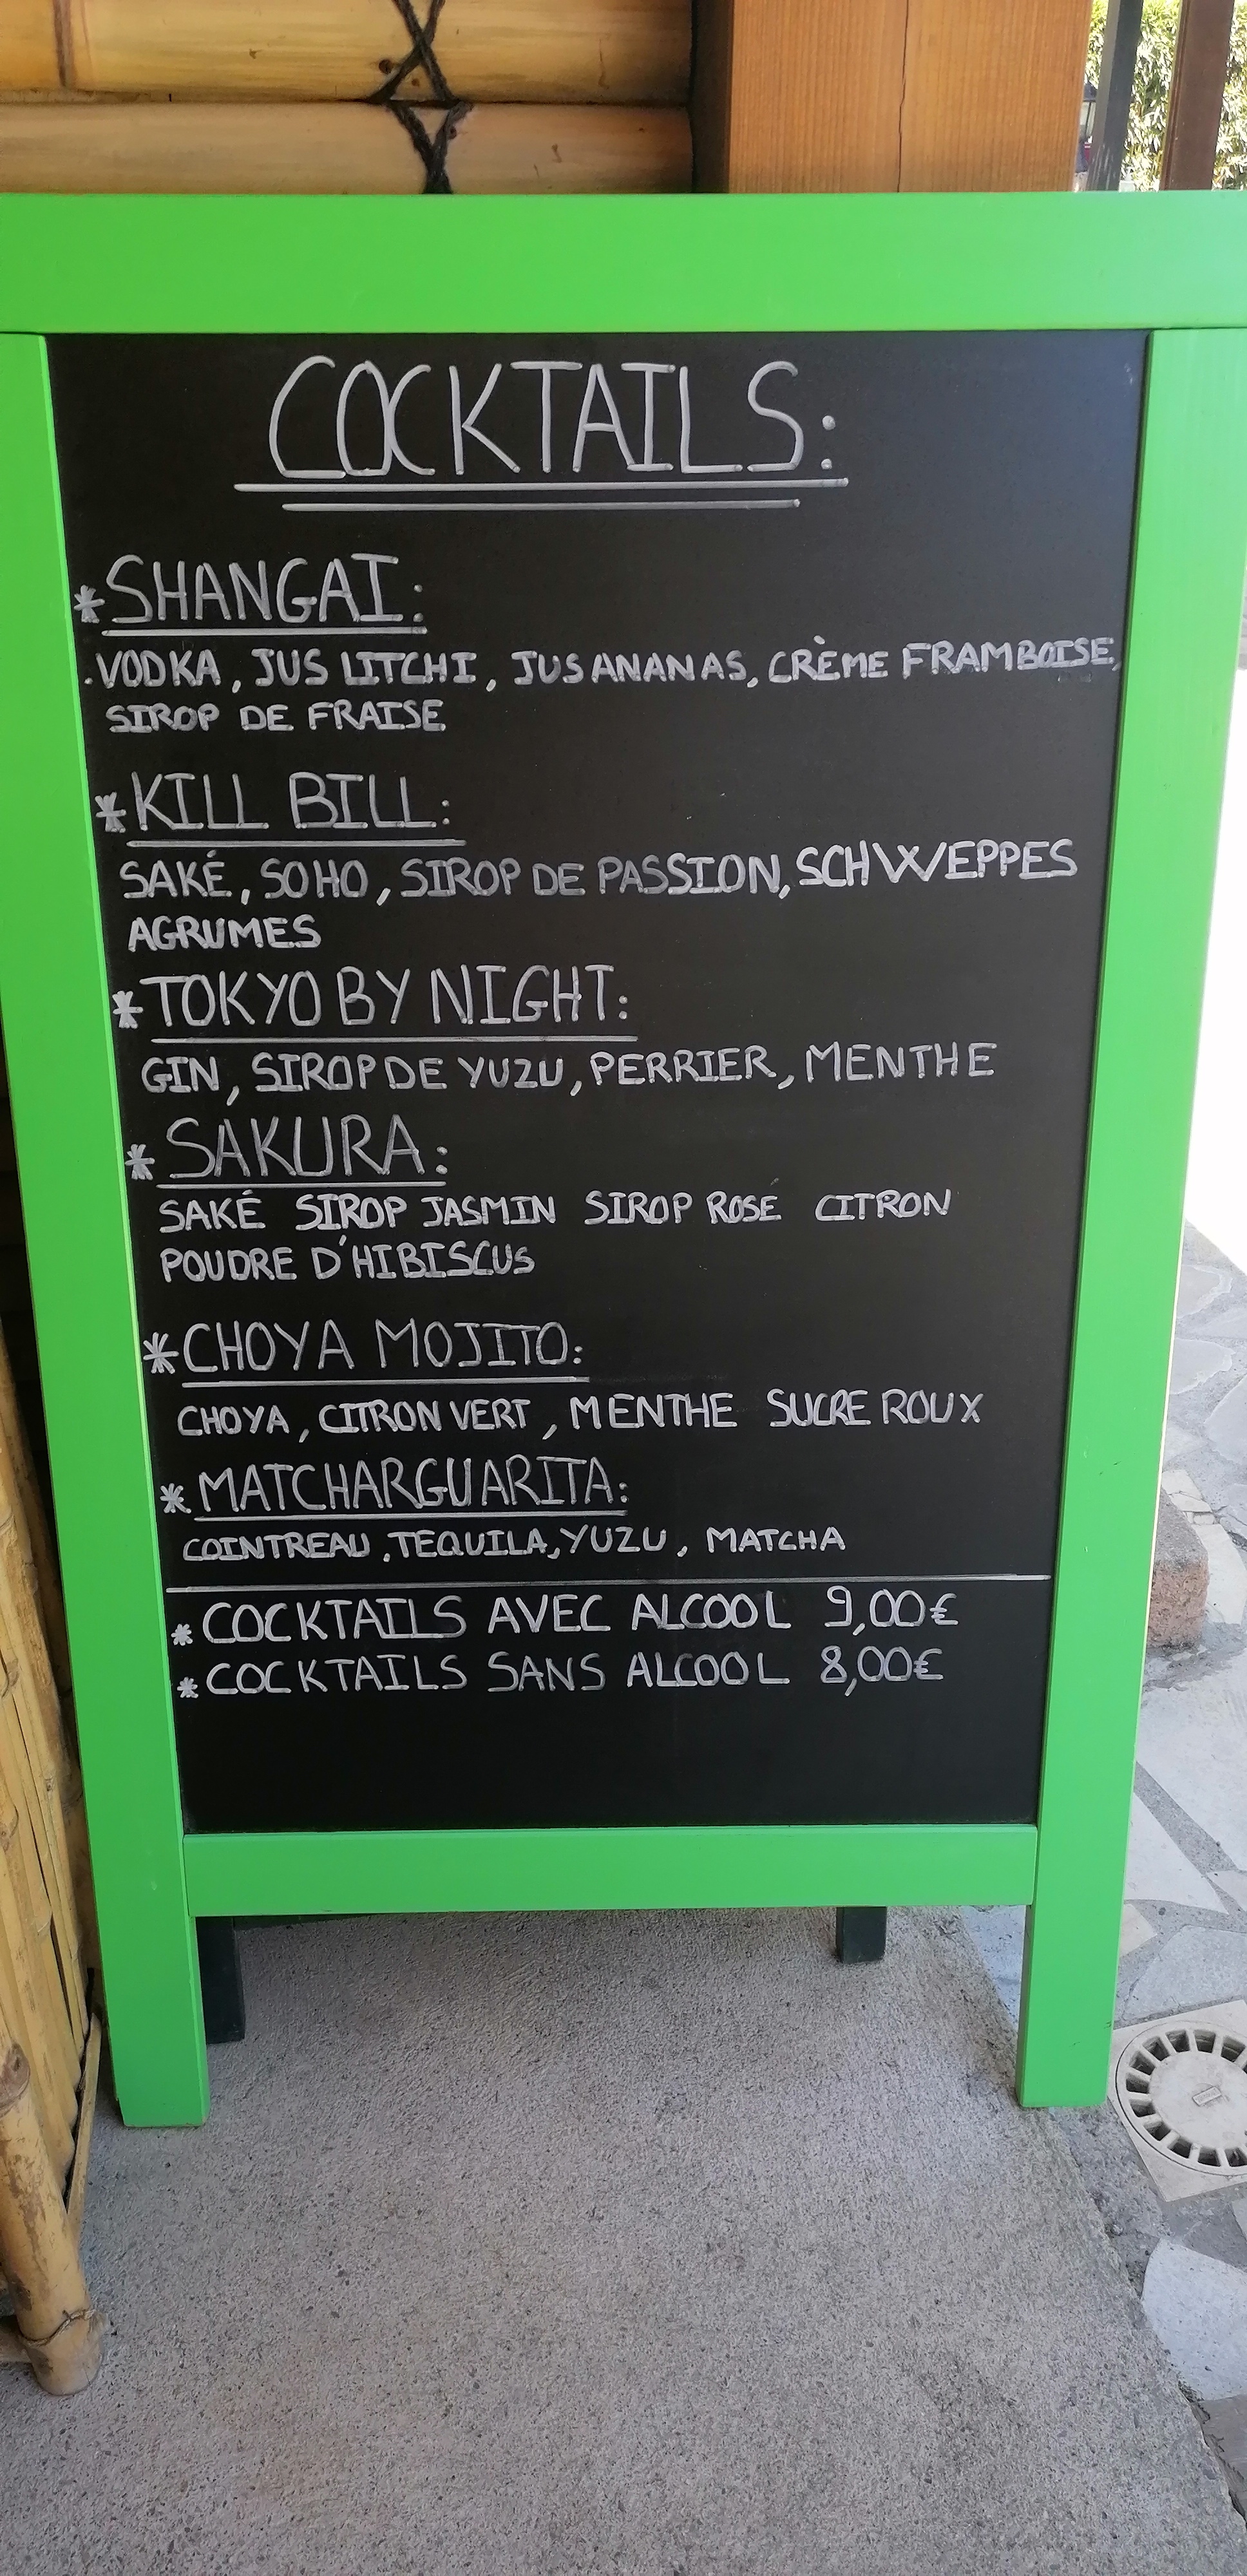 COCKTAILS:
*SHANGAI:
.VODKA, JUS LITCHI, JUS ANANAS, CRÈME FRAMBOISE,
SIROP DE FRAISE
*KILL BILL:
SAKÉ, SOHO, SIROP DE PASSION, SCHWEPPES
AGRUMES
*TOKYO BY NIGHT:
GIN, SIROP DE YUZU, PERRIER, MENTHE
*SAKURA:
SAKÉ SIROP JASMIN SIROP ROSE CITRON
POUDRE D'HIBISCUS
*CHOYA MOJITO:
CHOYA, CITRON VERT, MENTHE SUCRE ROUX
*MATCHARGUARITA:
COINTREAU, TEQUILA, YUZU, MATCHA
*COCKTAILS AVEC ALCOOL 9,00€
*COCKTAILS SANS ALCOOL 8,00€